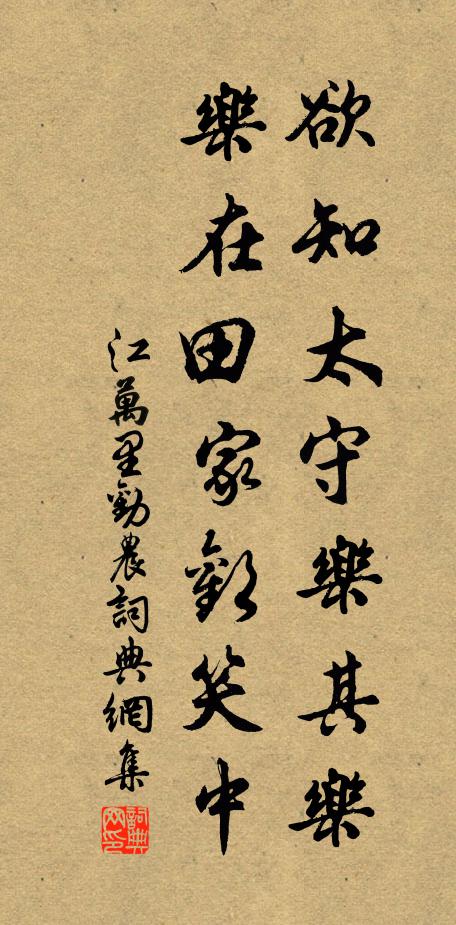 欲知太守樂其樂
樂在田家歡笑中
江萬里勸農詞典網集
詞典网印